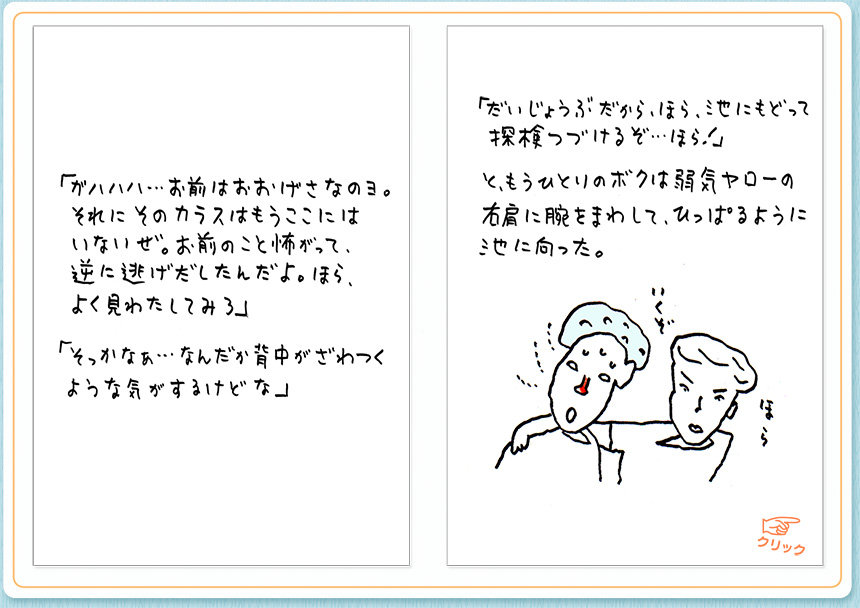 「ガハハハ…お前はおおげさなのヨ。
それにそのカラスはもうここには
いないぜ。お前のこと怖がって、
逆に逃げだしたんだよ。ほら、
よく見わたしてみろ」
「そっかなぁ…なんだか背中がざわつく
ような気がするけどな」
「だいじょうぶだから、ほら、池にもどって
探検つづけるぞ…ほら!」
と、もうひとりのボクは弱気ヤローの
右肩に腕をまわして、ひっぱるように
池に向った。
いくぞ
ほら
クリック